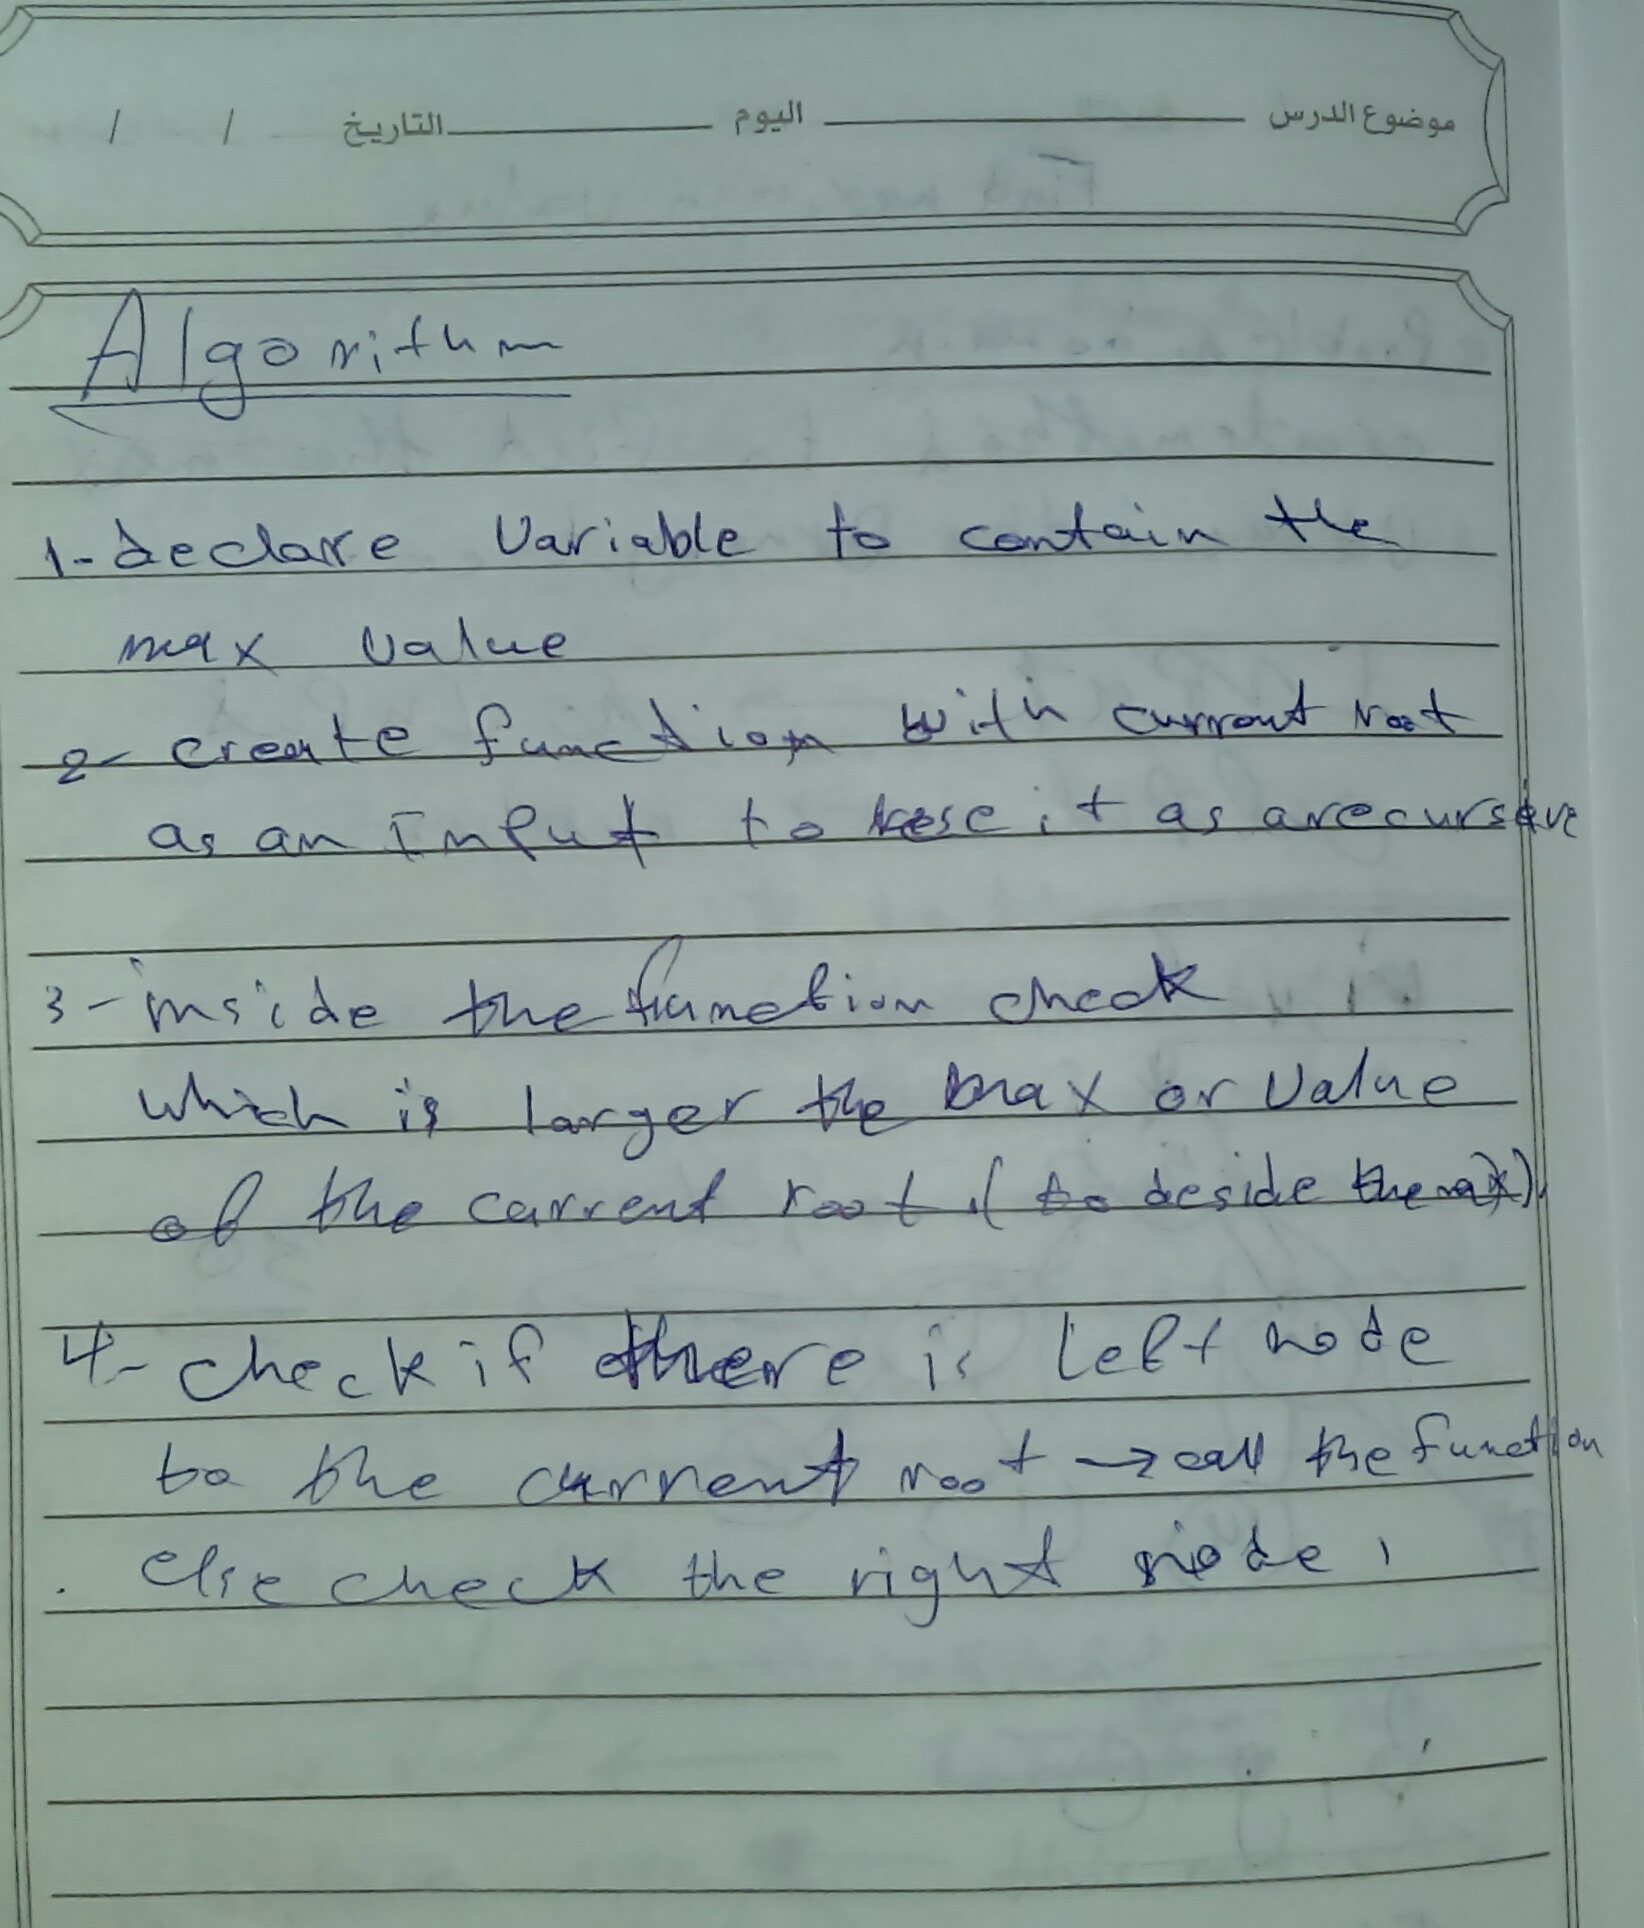 موضوع الدرس اليوم التاريخ / /
Algorithm
1- declare Variable to contain the
max value
2- create function with current root
as an Input to it as a recursive
3- inside the function check
which is larger the max or value
of the current root. (to deside the max)
4- check if there is left node
to the current root → call the function
else check the right node.